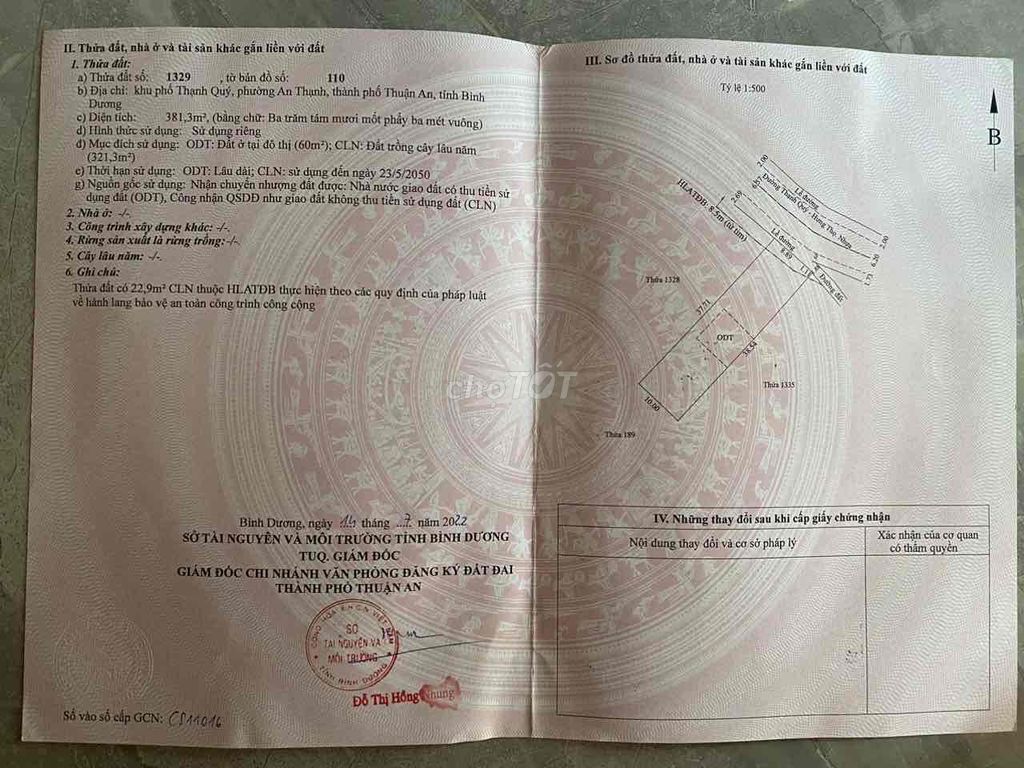 II. Thửa đất, nhà ở và tài sản khác gắn liền với đất
1. Thửa đất:
a) Thửa đất số: 1329 , tờ bản đồ số: 110
b) Địa chỉ: khu phố Thạnh Quý, phường An Thạnh, thành phố Thuận An, tỉnh Bình
Dương
c) Diện tích: 381,3m², (bằng chữ: Ba trăm tám mươi mốt phẩy ba mét vuông)
d) Hình thức sử dụng: Sử dụng riêng
đ) Mục đích sử dụng: ODT: Đất ở tại đô thị (60m²); CLN: Đất trồng cây lâu năm
(321,3m²)
e) Thời hạn sử dụng: ODT: Lâu dài; CLN: sử dụng đến ngày 23/5/2050
g) Nguồn gốc sử dụng: Nhận chuyển nhượng đất được: Nhà nước giao đất có thu tiền sử
dụng đất (ODT), Công nhận QSDĐ như giao đất không thu tiền sử dụng đất (CLN)
2. Nhà ở: -/-.
3. Công trình xây dựng khác: -/-.
4. Rừng sản xuất là rừng trồng:-/-.
5. Cây lâu năm: -/-.
6. Ghi chú:
Thửa đất có 22,9m² CLN thuộc HLATĐB thực hiện theo các quy định của pháp luật
về hành lang bảo vệ an toàn công trình công cộng
Bình Dương, ngày 14 tháng 7 năm 2022
SỞ TÀI NGUYÊN VÀ MÔI TRƯỜNG TỈNH BÌNH DƯƠNG
TUQ. GIÁM ĐỐC
GIÁM ĐỐC CHI NHÁNH VĂN PHÒNG ĐĂNG KÝ ĐẤT ĐAI
THÀNH PHỐ THUẬN AN
SỞ
TÀI NGUYÊN VÀ
MÔI TRƯỜNG
TỈNH BÌNH DƯƠNG
Đỗ Thị Hồng Nhung
Số vào sổ cấp GCN: CS11016
III. Sơ đồ thửa đất, nhà ở và tài sản khác gắn liền với đất
Tỷ lệ 1:500
B
2.00
Lề đường
6.97
Đường Thạnh Quý - Hưng Thọ, Nhựa
2.69
2.00
HLATĐB: 8.5m (từ tim)
Lề đường
6.20
8.89
1.73
1.11
Đường đất
Thửa 1328
37.71
ODT
38.54
Thửa 1335
10.00
Thửa 189
choTỐT
IV. Những thay đổi sau khi cấp giấy chứng nhận
Nội dung thay đổi và cơ sở pháp lý
Xác nhận của cơ quan
có thẩm quyền